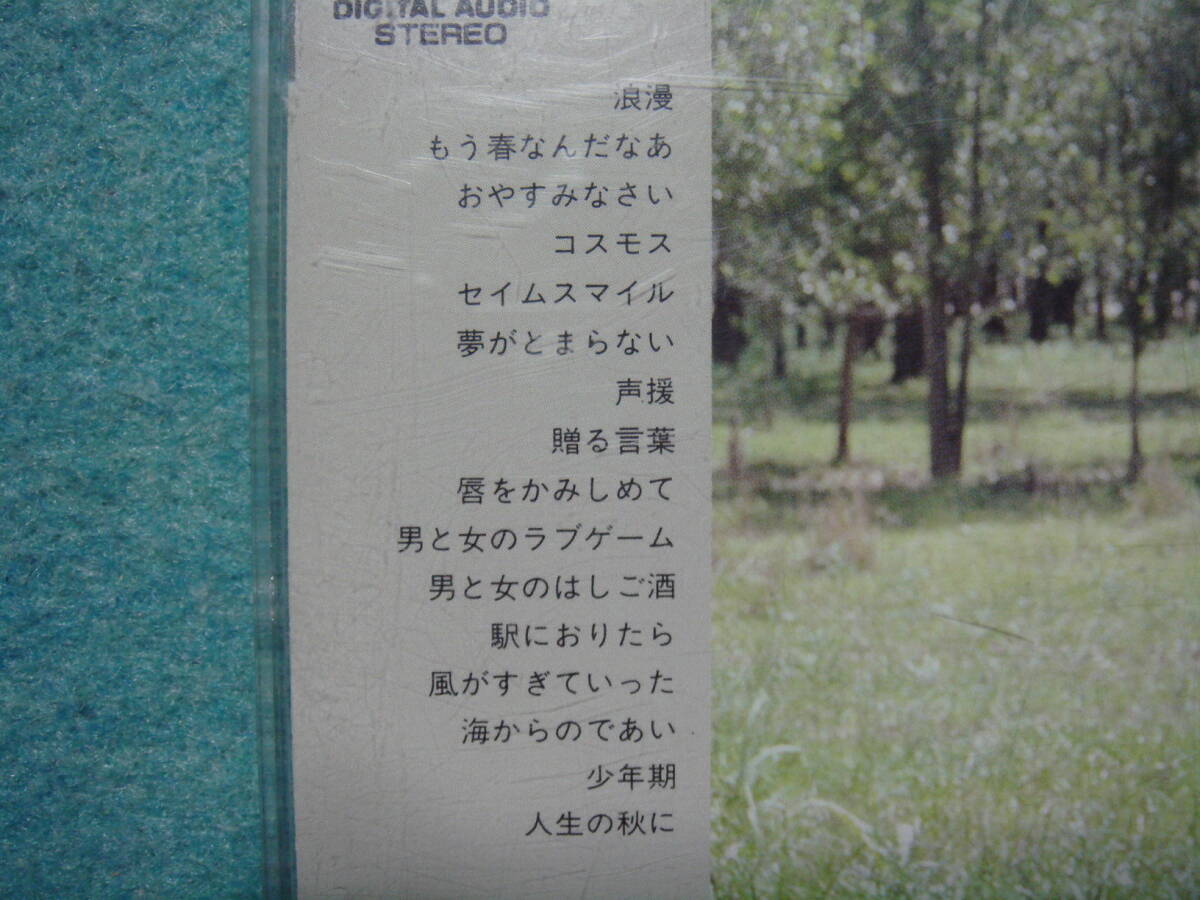 DIGITAL AUDIO
STEREO
浪漫
もう春なんだなあ
おやすみなさい
コスモス
セイムスマイル
夢がとまらない
声援
贈る言葉
唇をかみしめて
男と女のラブゲーム
男と女のはしご酒
駅におりたら
風がすぎていった
海からのであい
少年期
人生の秋に